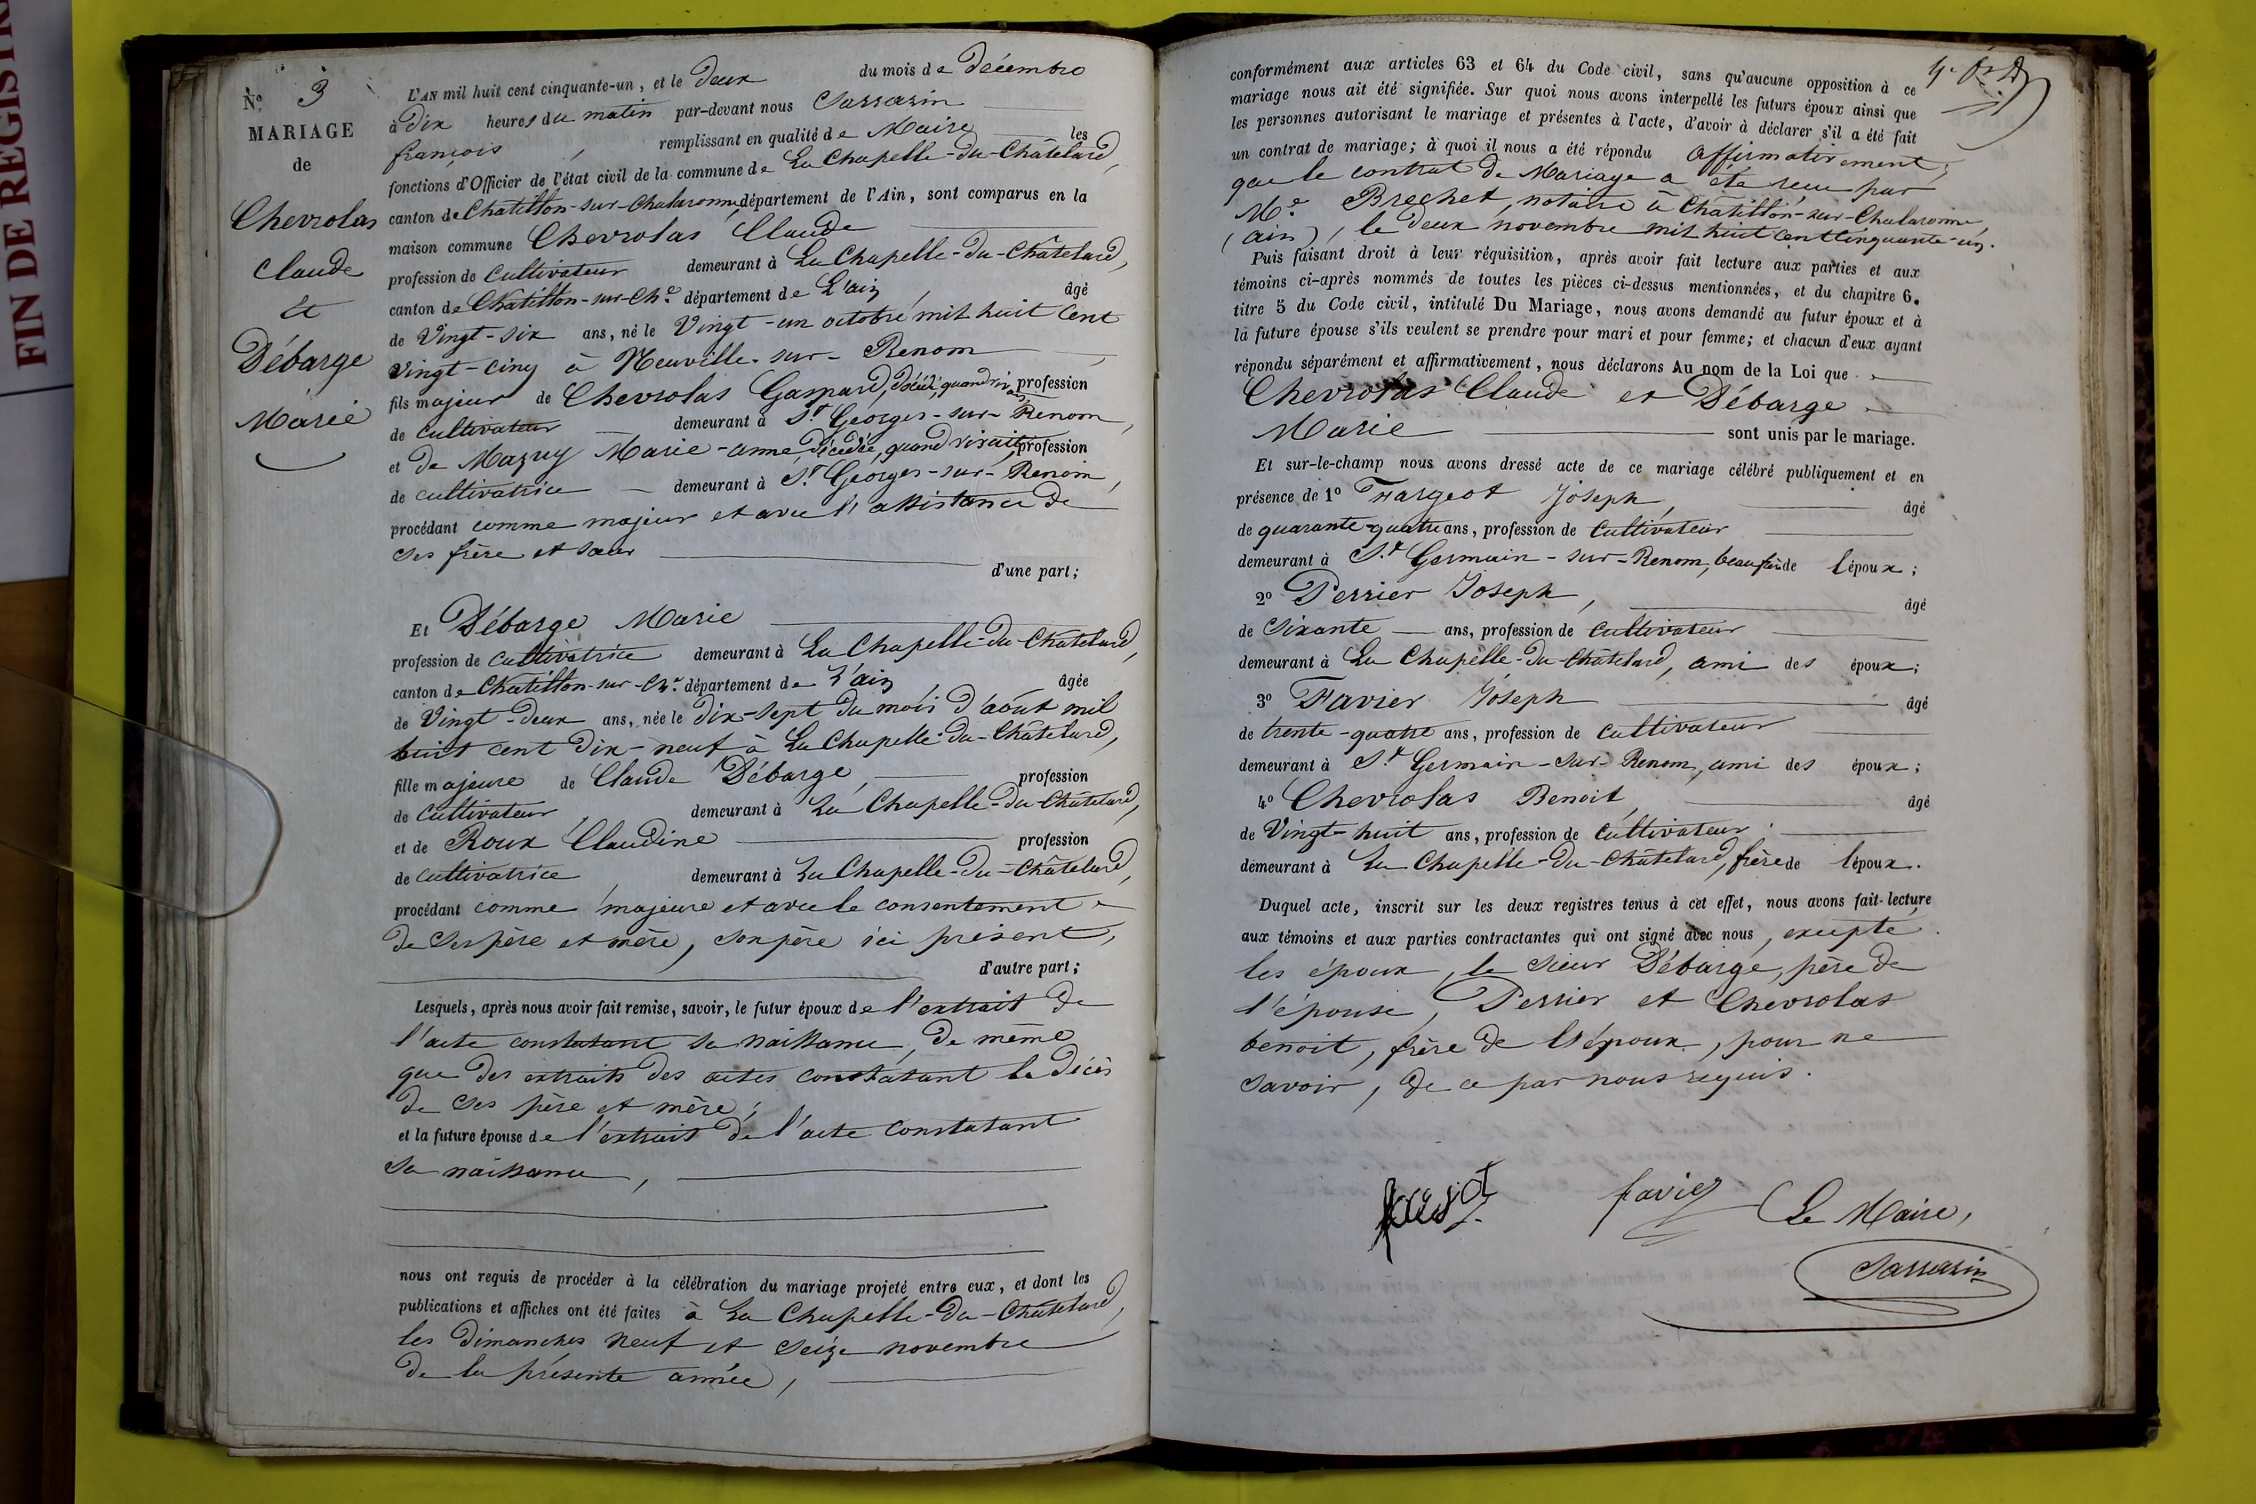 FIN DE REGISTR
N.o 3
MARIAGE
de
Chevrolas
Claude
et
Débarge
Marie
L'AN mil huit cent cinquante-un, et le deux du mois de décembre
à dix heures du matin par-devant nous Sarrasin
françois, remplissant en qualité de Maire les
fonctions d'Officier de l'état civil de la commune de La Chapelle-du-Châtelard,
canton de Chatillon-sur-Chalaronne, département de l'Ain, sont comparus en la
maison commune Chevrolas Claude
profession de cultivateur demeurant à La Chapelle-du-Châtelard,
canton de Chatillon-sur-Ch.e département de L'ain, âgé
de Vingt-six ans, né le Vingt-un octobre mil huit cent
vingt-cinq à Neuville-sur-Renom,
fils majeur de Chevrolas Gaspard, décédé, quand vivait profession
de cultivateur demeurant à St. Georges-sur-Renom,
et de Mazuy Marie-anne, décédée, quand vivait profession
de cultivatrice demeurant à St. Georges-sur-Renom,
procédant comme majeur et avec l'assistance de
ses frère et sœur
d'une part;
Et Débarge Marie
profession de cultivatrice demeurant à La Chapelle-du-Châtelard,
canton de Chatillon-sur-Ch.e département de L'ain âgée
de Vingt-deux ans, née le dix-sept du mois d'août mil
huit cent dix-neuf à La Chapelle-du-Châtelard,
fille majeure de Claude Débarge, profession
de cultivateur, demeurant à La Chapelle-du-Châtelard,
et de Roux Claudine profession
de cultivatrice, demeurant à La Chapelle-du-Châtelard,
procédant comme majeure et avec le consentement
de ses père et mère, son père ici présent,
d'autre part;
Lesquels, après nous avoir fait remise, savoir, le futur époux de l'extrait de
l'acte constatant sa naissance, de même
que des extraits des actes constatant le décès
de ses père et mère;
et la future épouse de l'extrait de l'acte constatant
sa naissance,
nous ont requis de procéder à la célébration du mariage projeté entre eux, et dont les
publications et affiches ont été faites à La Chapelle-du-Châtelard,
les dimanches neuf et seize novembre
de la présente année,
conformément aux articles 63 et 64 du Code civil, sans qu'aucune opposition à ce
mariage nous ait été signifiée. Sur quoi nous avons interpellé les futurs époux ainsi que
les personnes autorisant le mariage et présentes à l'acte, d'avoir à déclarer s'il a été fait
un contrat de mariage; à quoi il nous a été répondu affirmativement,
que le contrat de Mariage a été reçu par
M.e Brechet, notaire à Châtillon-sur-Chalaronne
(ain), le deux novembre mil huit cent cinquante-un.
Puis faisant droit à leur réquisition, après avoir fait lecture aux parties et aux
témoins ci-après nommés de toutes les pièces ci-dessus mentionnées, et du chapitre 6,
titre 5 du Code civil, intitulé Du Mariage, nous avons demandé au futur époux et à
la future épouse s'ils veulent se prendre pour mari et pour femme; et chacun d'eux ayant
répondu séparément et affirmativement, nous déclarons Au nom de la Loi que
Chevrolas Claude et Débarge
Marie sont unis par le mariage.
Et sur-le-champ nous avons dressé acte de ce mariage célébré publiquement et en
présence de 1o Fargeot Joseph, âgé
de quarante-quatre ans, profession de cultivateur
demeurant à St. Germain-sur-Renom, beaufrère de l'époux;
2o Perrier Joseph, âgé
de Sixante ans, profession de cultivateur
demeurant à La Chapelle-du-Châtelard, ami des époux;
3o Favier Joseph âgé
de trente-quatre ans, profession de cultivateur
demeurant à St. Germain-sur-Renom, ami des époux;
4o Chevrolas Benoit, âgé
de Vingt-huit ans, profession de cultivateur
demeurant à La Chapelle-du-Châtelard, frère de l'époux.
Duquel acte, inscrit sur les deux registres tenus à cet effet, nous avons fait lecture
aux témoins et aux parties contractantes qui ont signé avec nous, excepté
les époux, le sieur Débarge, père de
l'épouse, Perrier et Chevrolas
benoit, frère de l'époux, pour ne
savoir, de ce par nous requis.
favier
Le Maire,
Sarrasin